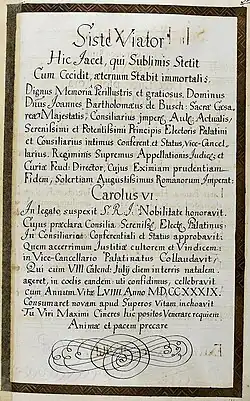 Siste Viator
Hic Jacet, qui Sublimis Stetit
Cum Cecidit, æternum Stabit immortalis.
Dignus Memoria Perillustris et gratiosus Dominus
Dnus Joannes Bartholomæus de Busch: Sacræ Cæsa,,
reæ Majestatis, Consiliarius imper, Aulæ Actualis,
Serenissimi et Potentissimi Principis Electoris Palatini
et Consiliarius intimus Conferent. et Status, Vice-Cancel,,
larius, Regiminis Supremus Appellationis Judex, et
Curiæ Feud: Director, Cujus Eximiam prudentiam
Fidem, Solertiam Augustissimus Romanorum Imperat:
Carolus VI.
In legato suspexit S. R. I. Nobilitate honoravit.
Cujus præclara Consilia Sereniss: Elect: Palatinus
In Consiliarium Conferentiali et Status approbavit.
Quem accerrimum Justitiæ cultorem et Vindicem
in Vice-Cancellario Palatinatus Collaudavit,
Qui cum VIII Calend: Julij diem in terris natalem
ageret, in coelis eandem uti confidimus, celebravit
cum Annum Vitæ LVIIII Anno MD,CC,XXXIX.
Consumaret novam apud Superos Vitam inchoavit
Tu Viri Maximi Cineres Hic positos Venerare requiem
Animæ et pacem precare